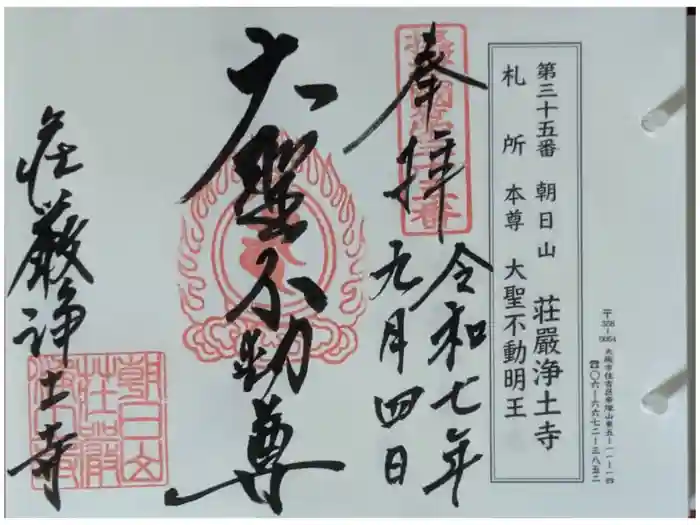 〒558-0054 大阪市住吉区帝塚山東五-一一-一四
☎〇六-六六七二-三八五二
第三十五番 朝日山 荘嚴浄土寺
札所本尊 大聖不動明王
奉拝
令和七年
九月四日
大聖不動尊
荘厳浄土寺
朝日山
荘嚴